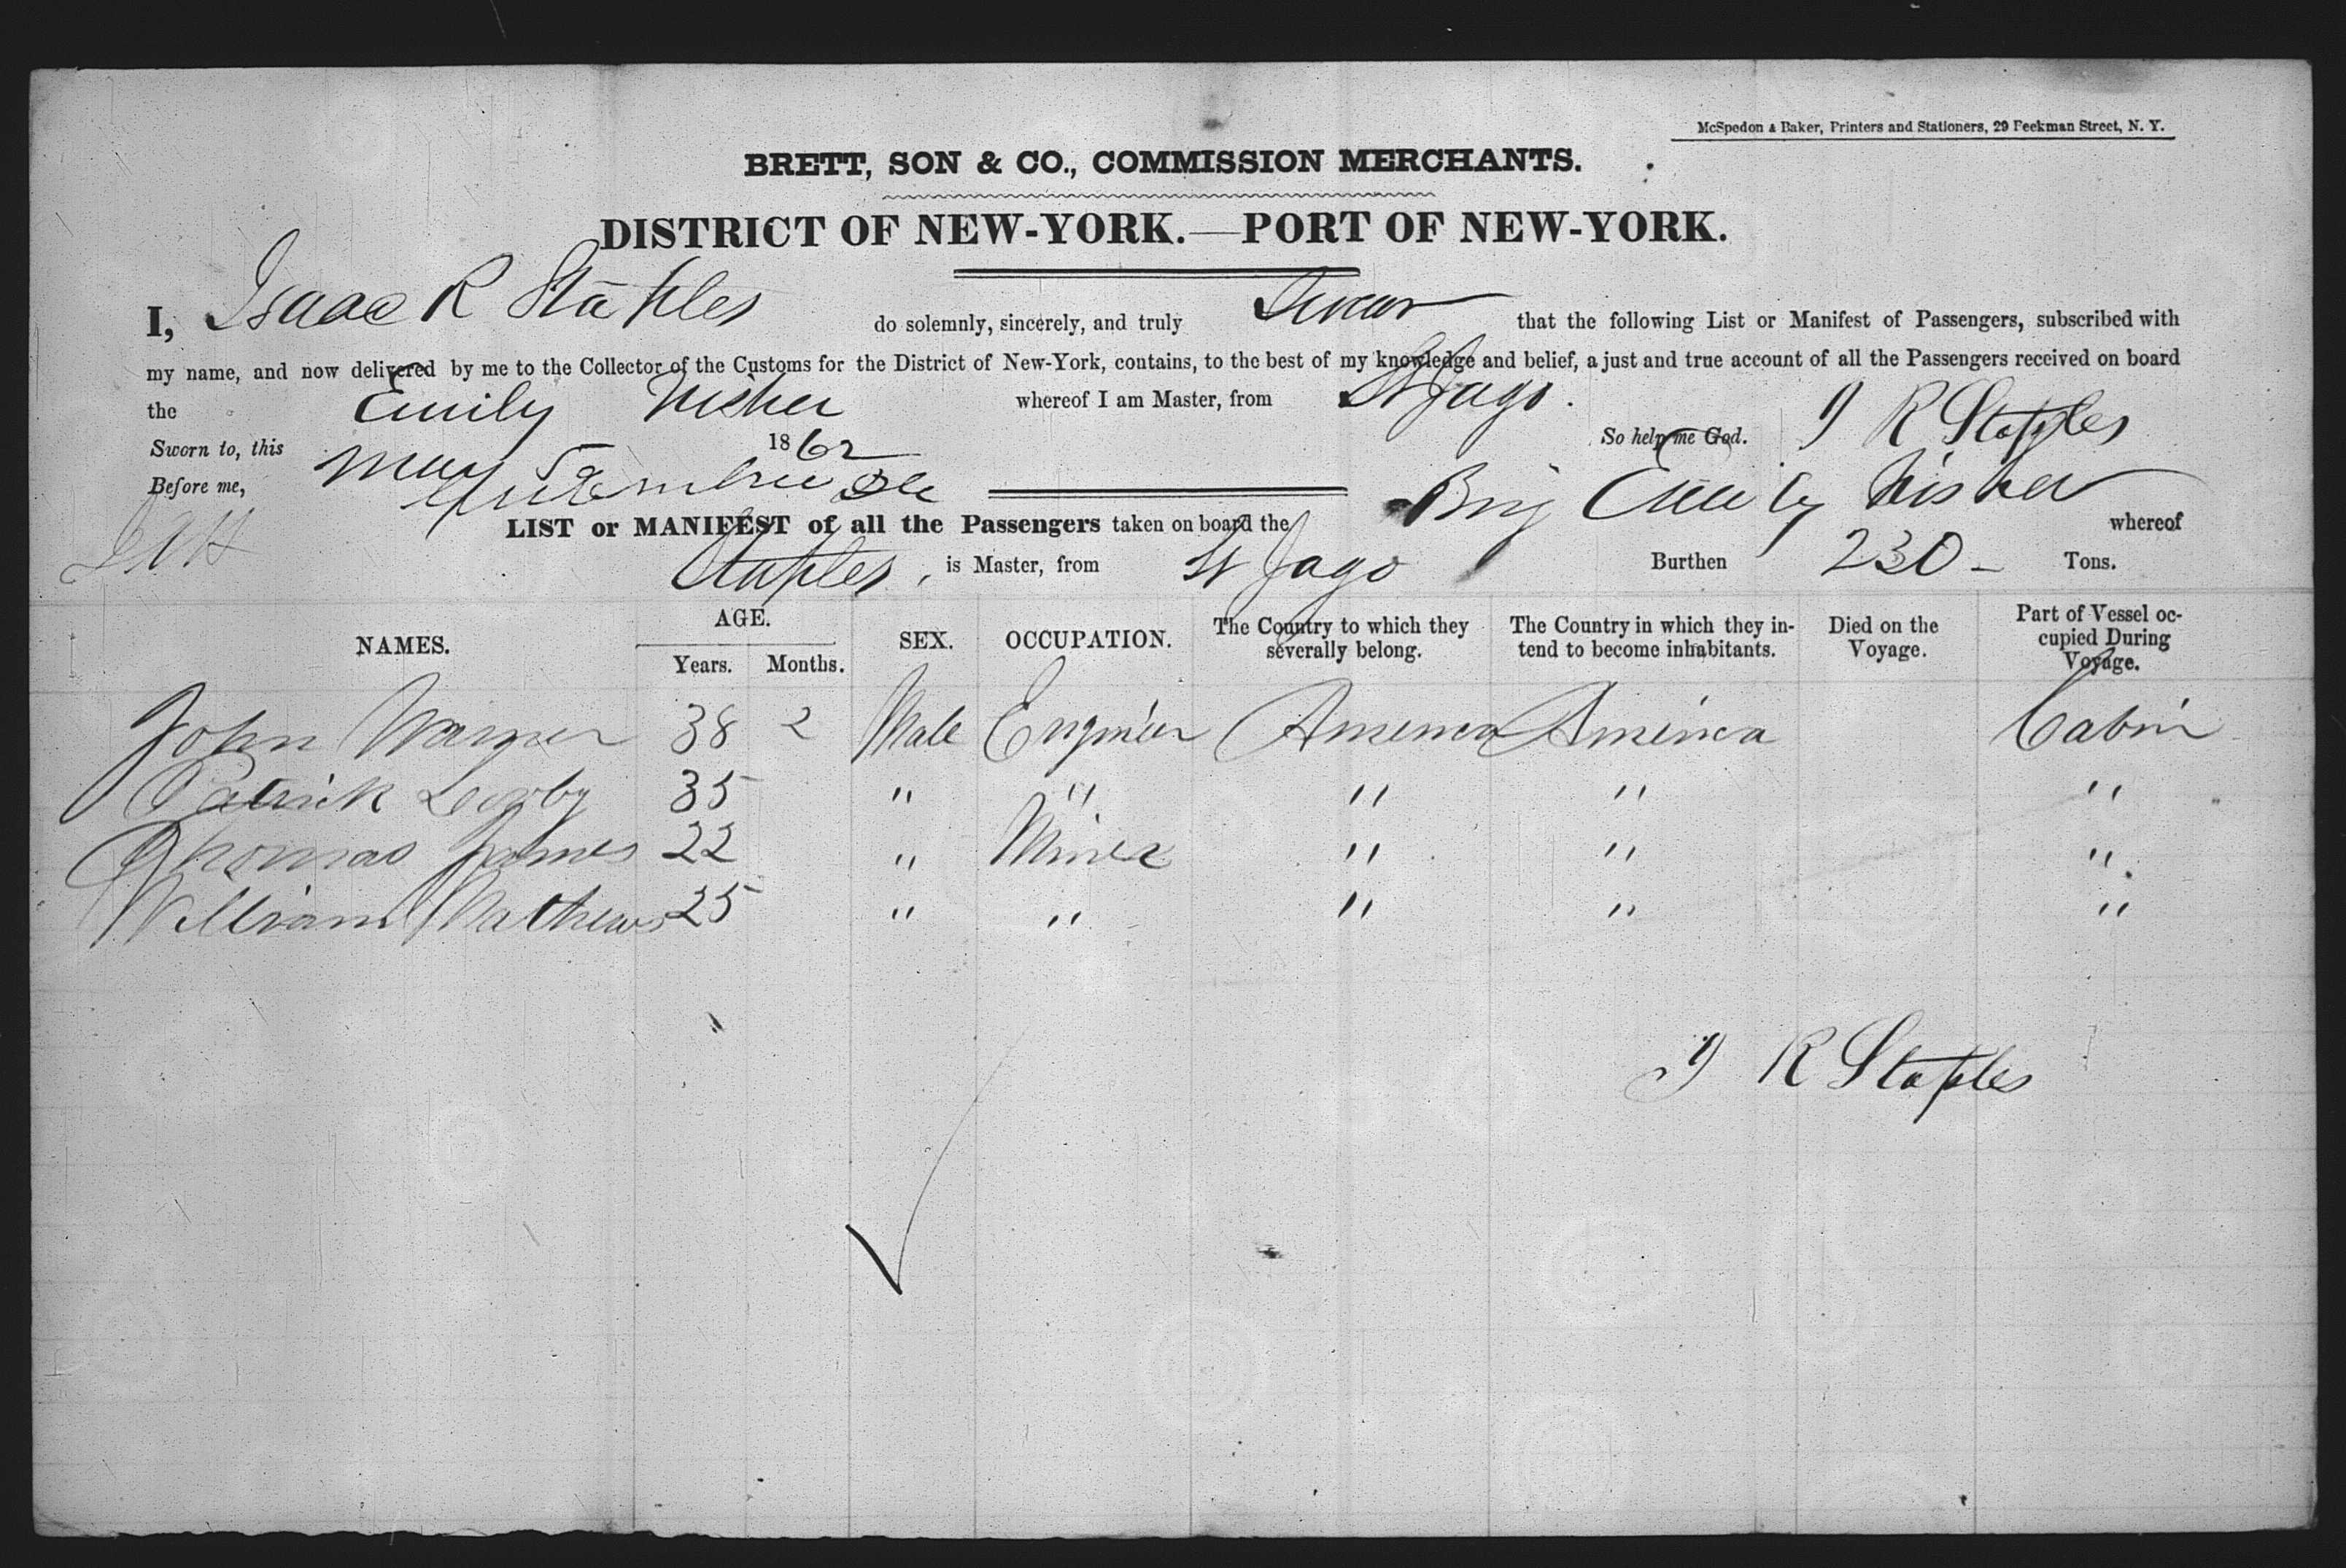 McSpedon & Baker, Printers and Stationers, 29 Beekman Street, N. Y.
BRETT, SON & CO., COMMISSION MERCHANTS.
DISTRICT OF NEW-YORK.—PORT OF NEW-YORK.
I, Isaac R Staples do solemnly, sincerely, and truly Swear that the following List or Manifest of Passengers, subscribed with
my name, and now delivered by me to the Collector of the Customs for the District of New-York, contains, to the best of my knowledge and belief, a just and true account of all the Passengers received on board
the Emily Fisher whereof I am Master, from St Jago.
So help me God. I R Staples
Sworn to, this May 5 1862
Before me,
LIST or MANIFEST of all the Passengers taken on board the Brig Emily Fisher whereof
Staples, is Master, from St Jago Burthen 230 - Tons.
NAMES. AGE. Years. Months. SEX. OCCUPATION. The Country to which they severally belong. The Country in which they intend to become inhabitants. Died on the Voyage. Part of Vessel occupied During Voyage.
John Warner 38 2 Male Engineer America America Cabin
Patrick 35 " " " " "
Thomas James 22 " Miner " " "
William Mathews 25 " " " " "
I R Staples